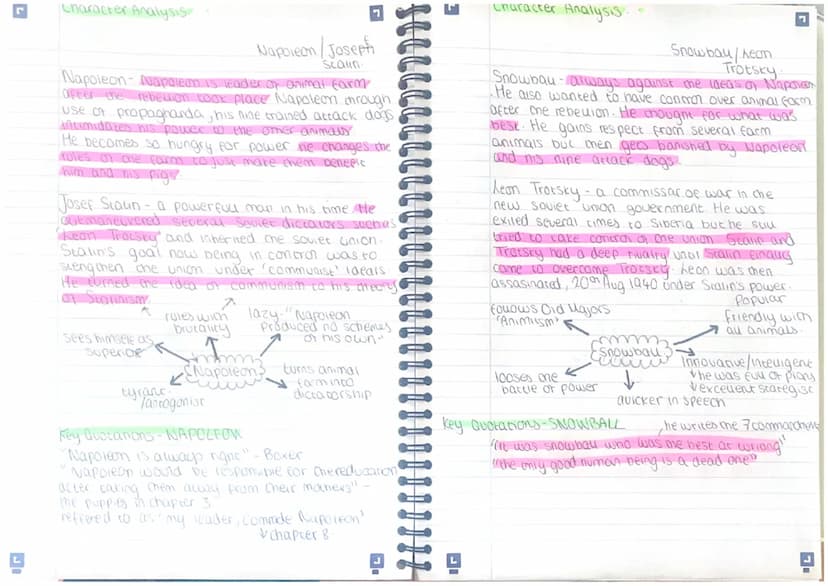 Character Analysis
Napoleon/Joseph
Stalin
Napoleon - Napoleon is leader of animal farm
after the rebelion took place Napoleon through
use of propagharda, his nine trained attack dogs
intimidates his power to the other animals
He becomes so hungry for power he changes the
rules of the farm to just make them benefit
him and his pigs
Josef Stalin - a powerfull man in his time. He
outmaneuvered several Soviet dictators such as
'Leon Trotsky' and inherited the soviet union.
Stalin's goal now being in control was to
strengthen the union under 'communist' ideals
He turned the idea of communism to his theory
of Stalinism.
rules with
brutality
lazy - "Napoleon
produced no schemes
of his own"
sees himself as
superior
Napoleon
tyrant/
antagonist
turns animal
farm into
dictatorship
Key Quotations - NAPOLEON
"Napoleon is always right" - Boxer
"Napoleon would be responsible for the education
after taking them away from their mothers" -
the puppies in chapter 3
reffered to as 'my leader, comrade Napoleon'
chapter 8
Character Analysis.
Snowball/Leon
Trotsky
Snowball - always against the ideas of Napoleon
He also wanted to have control over animal farm
after the rebellion. He thought for what was
best. He gains respect from several farm
animals but then gets banished by Napoleon
and his nine attack dogs.
Leon Trotsky - a commissar of war in the
new soviet union government. He was
exiled several times to Siberia but he still
tried to take control of the union Stalin and
Trotsky had a deep rivalry until Stalin finally
came to overcome Trotsky. Leon was then
assasinated, 20th Aug 1940 under Stalin's power.
follows Old Majors
'Animlism'
Popular
friendly with
all animals.
Snowball
looses the
battle of power
quicker in speech
Innovative/intelligent
he was full of plans
excellent strategist
Key Quotations - SNOWBALL
he writes the 7 commandments
"it was snowball who was the best at writing"
"the only good human being is a dead one"